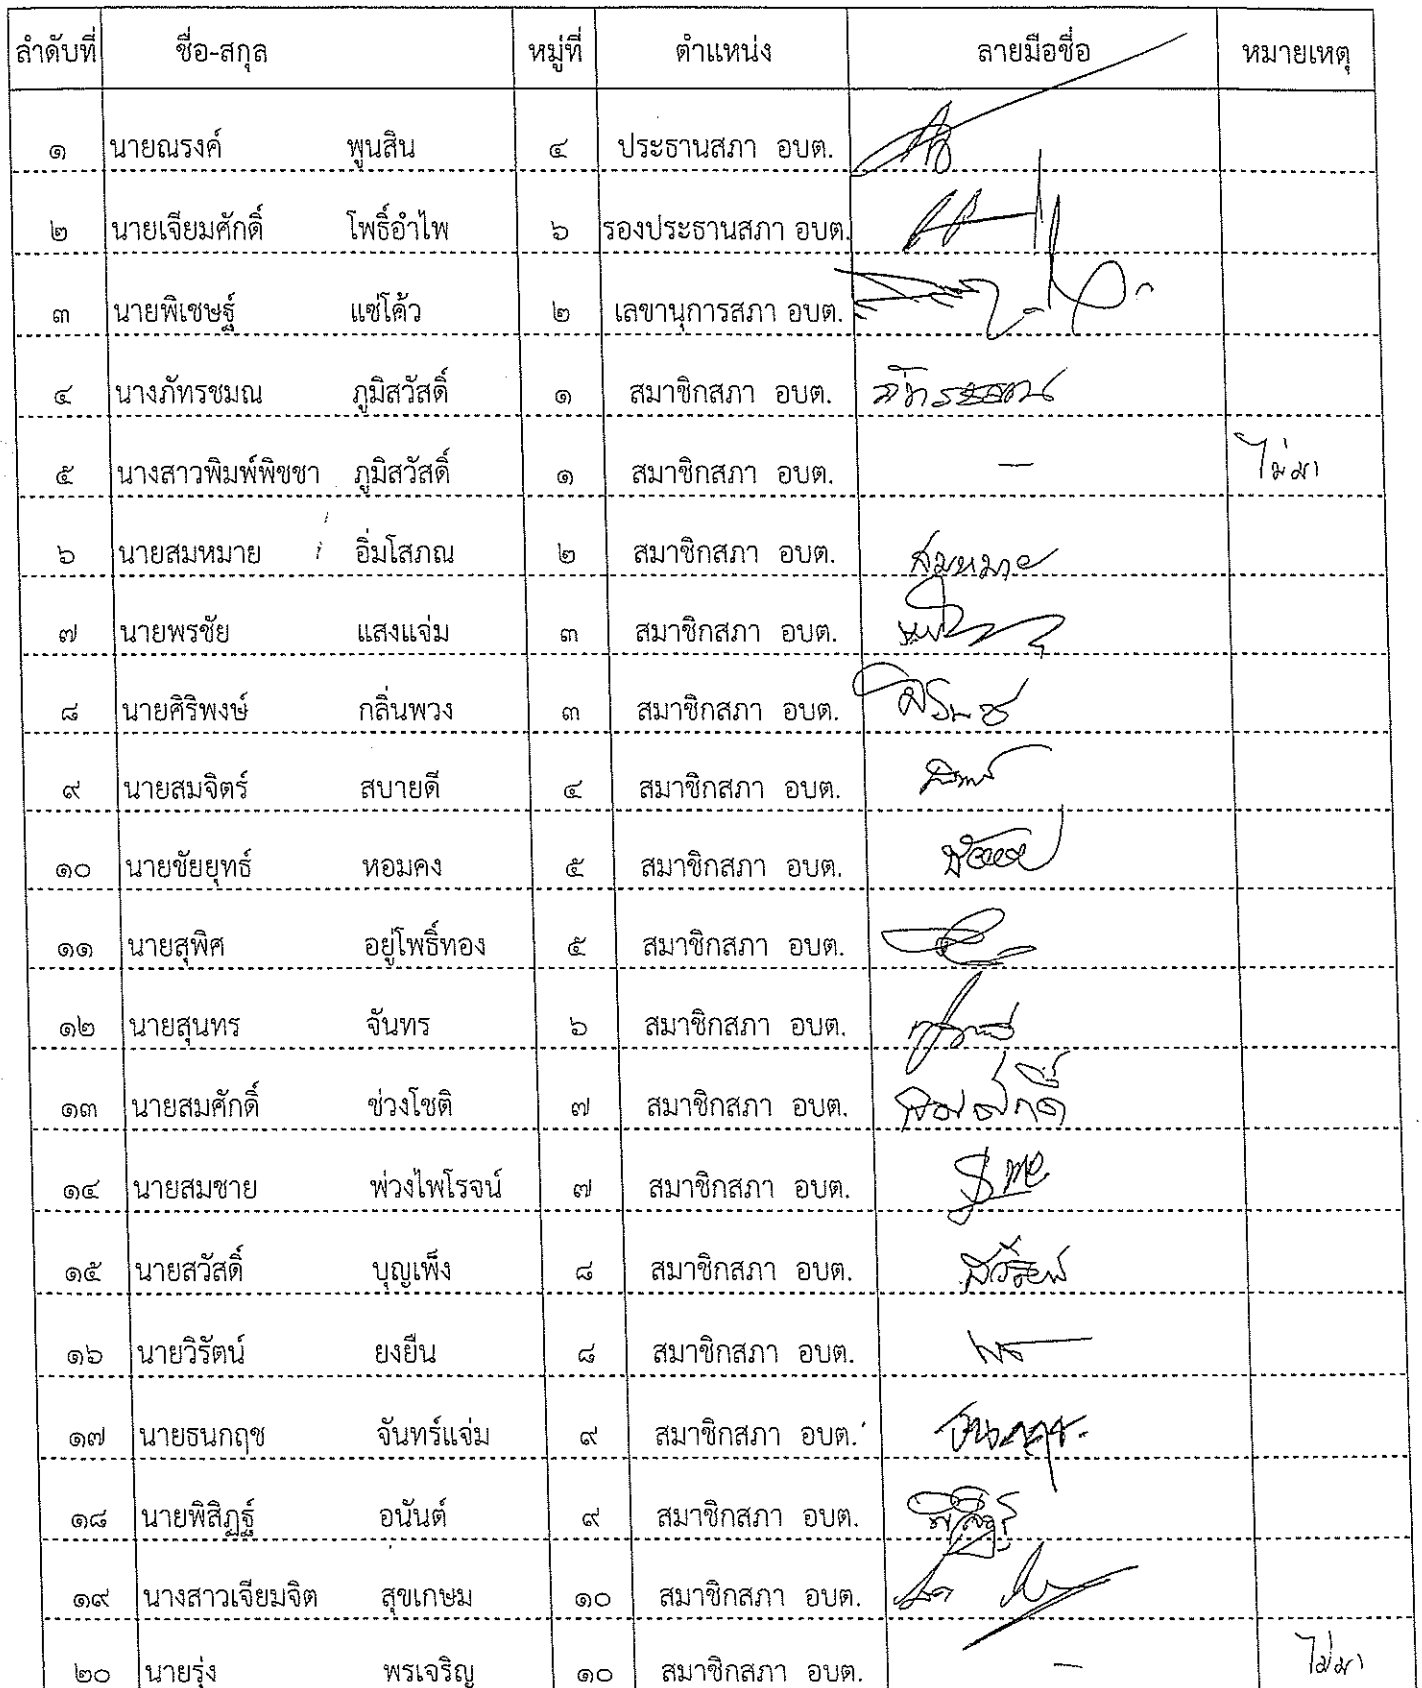 ลำดับที่ ชื่อ-สกุล หมู่ที่ ตำแหน่ง ลายมือชื่อ หมายเหตุ
๑ นายณรงค์ พูนสิน ๔ ประธานสภา อบต.
๒ นายเจียมศักดิ์ โพธิ์อำไพ ๖ รองประธานสภา อบต.
๓ นายพิเชษฐ์ แซ่โค้ว ๒ เลขานุการสภา อบต.
๔ นางภัทรชมณ ภูมิสวัสดิ์ ๑ สมาชิกสภา อบต.
๕ นางสาวพิมพ์พิชชา ภูมิสวัสดิ์ ๑ สมาชิกสภา อบต. — ไม่มา
๖ นายสมหมาย อิ่มโสภณ ๒ สมาชิกสภา อบต. สมหมาย
๗ นายพรชัย แสงแจ่ม ๓ สมาชิกสภา อบต.
๘ นายศิริพงษ์ กลิ่นพวง ๓ สมาชิกสภา อบต.
๙ นายสมจิตร์ สบายดี ๔ สมาชิกสภา อบต.
๑๐ นายชัยยุทธ์ หอมคง ๕ สมาชิกสภา อบต.
๑๑ นายสุพิศ อยู่โพธิ์ทอง ๕ สมาชิกสภา อบต.
๑๒ นายสุนทร จันทร ๖ สมาชิกสภา อบต.
๑๓ นายสมศักดิ์ ช่วงโชติ ๗ สมาชิกสภา อบต. สมศักดิ์
๑๔ นายสมชาย พ่วงไพโรจน์ ๗ สมาชิกสภา อบต.
๑๕ นายสวัสดิ์ บุญเพ็ง ๘ สมาชิกสภา อบต.
๑๖ นายวิรัตน์ ยงยืน ๘ สมาชิกสภา อบต.
๑๗ นายธนกฤช จันทร์แจ่ม ๙ สมาชิกสภา อบต. ธนกฤช
๑๘ นายพิสิฏฐ์ อนันต์ ๙ สมาชิกสภา อบต.
๑๙ นางสาวเจียมจิต สุขเกษม ๑๐ สมาชิกสภา อบต.
๒๐ นายรุ่ง พรเจริญ ๑๐ สมาชิกสภา อบต. — ไม่มา